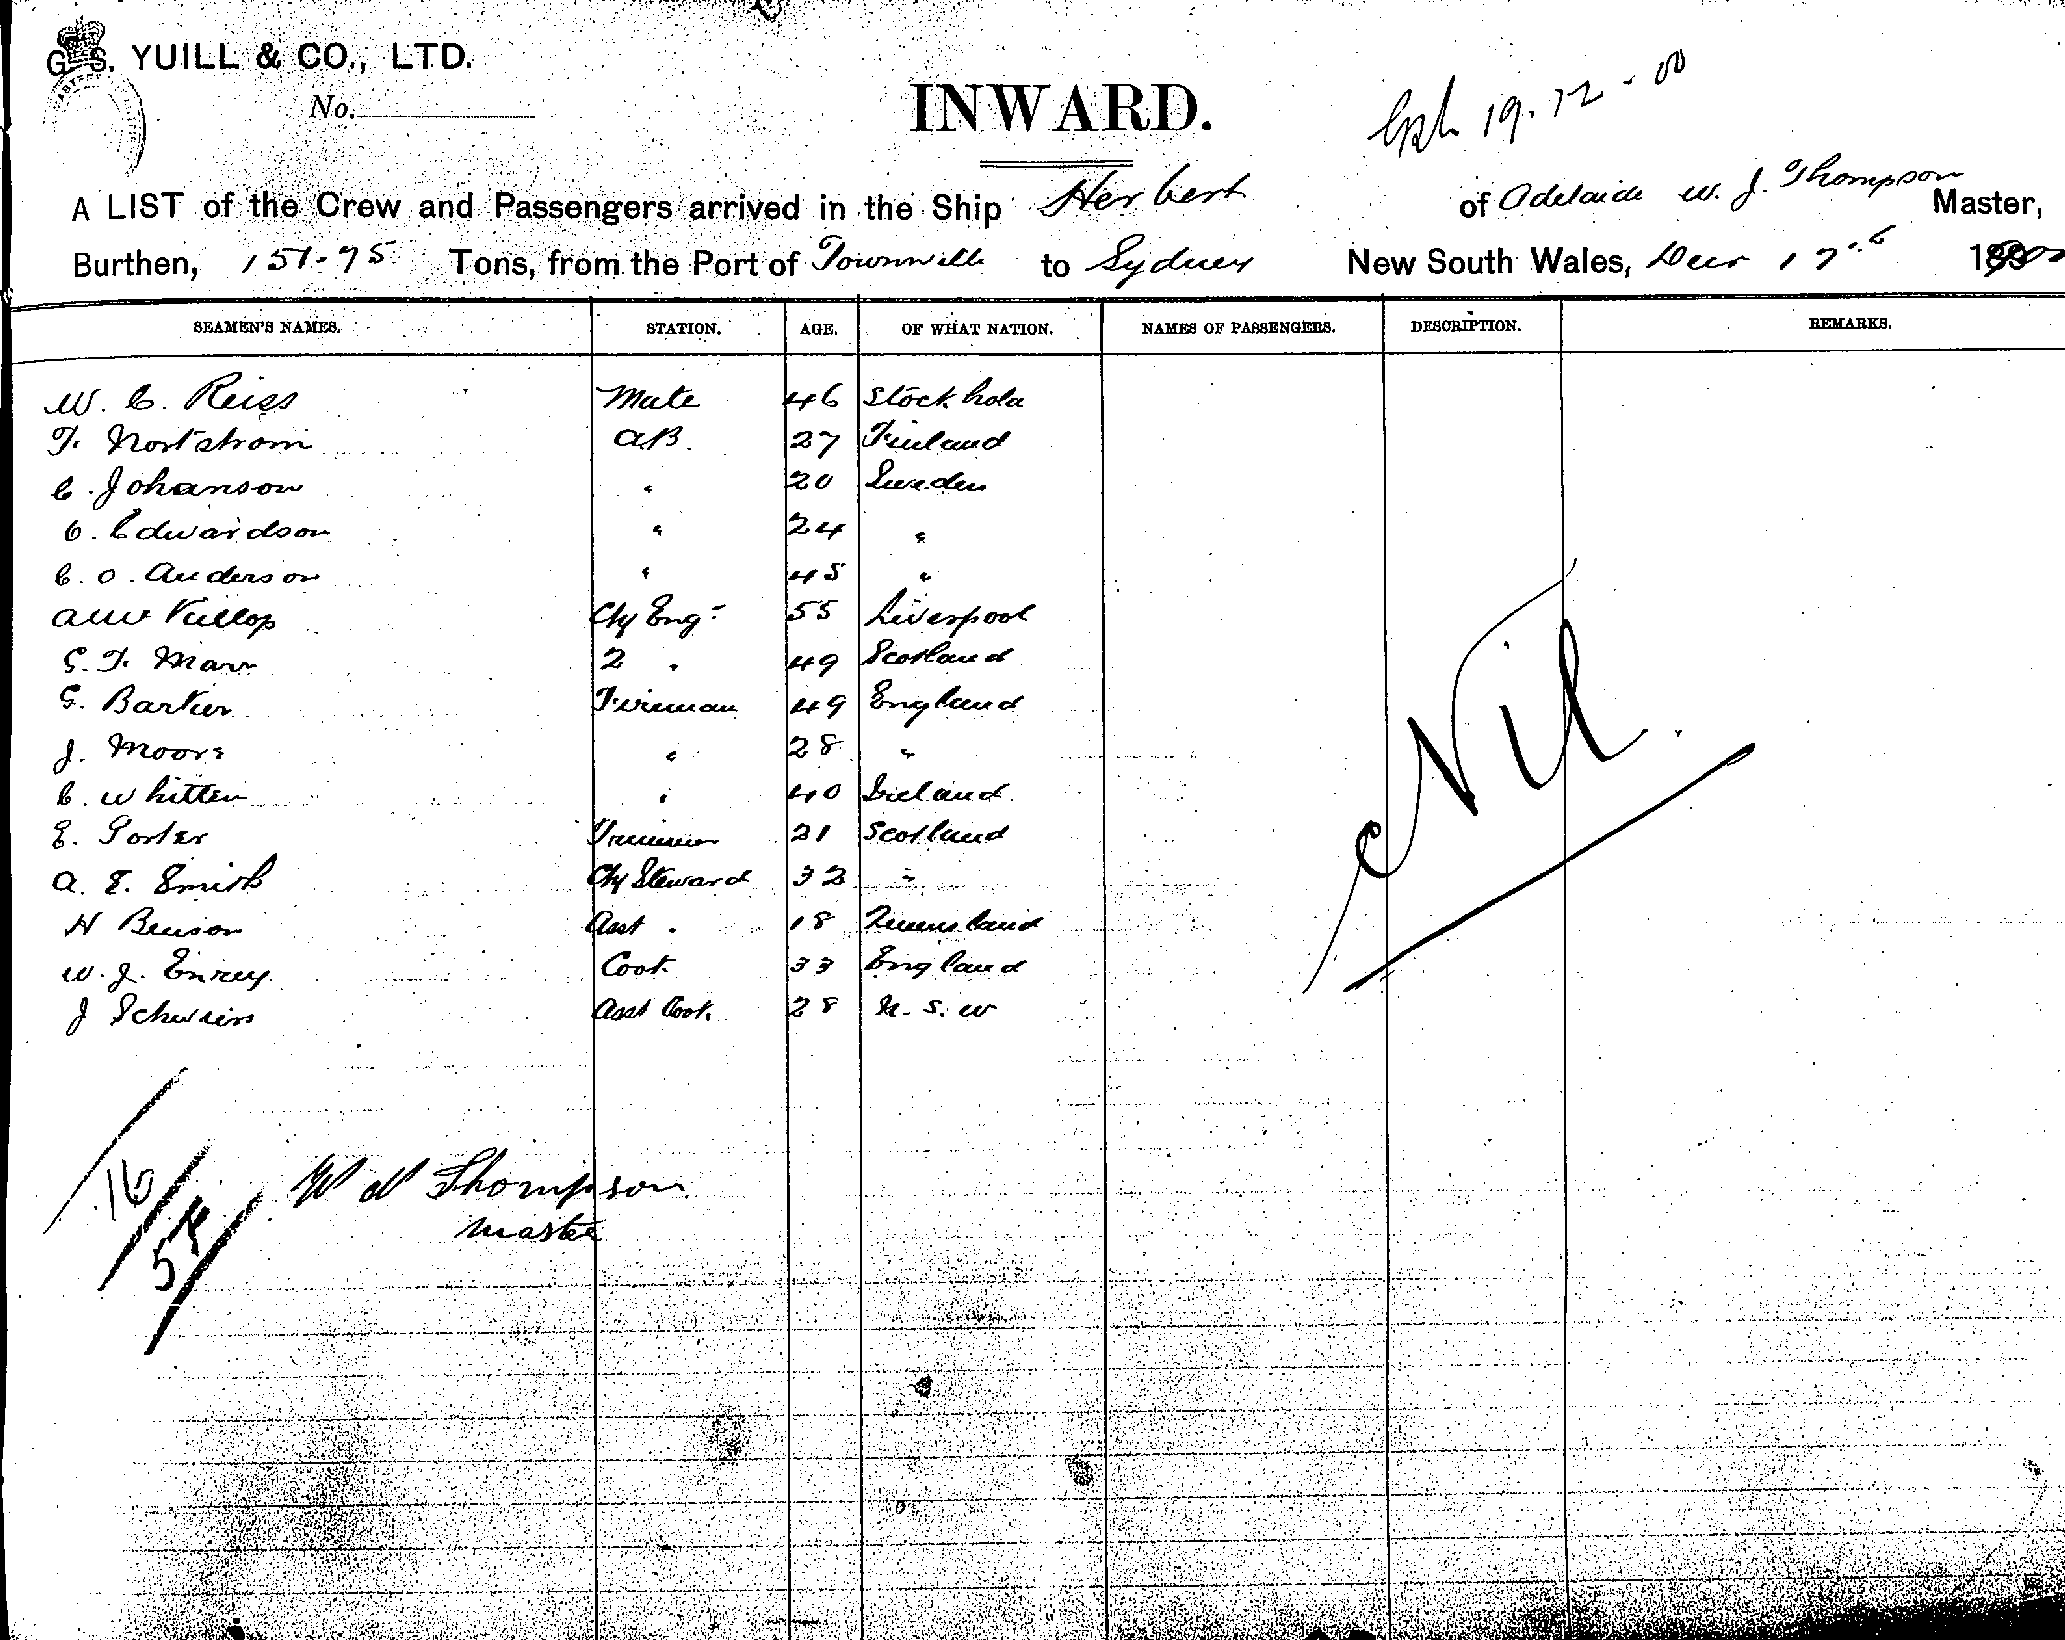 G. S. YUILL & CO., LTD.
No.
INWARD.
19.12.00
A LIST of the Crew and Passengers arrived in the Ship Herbert of Adelaide W. J. Thompson Master,
Burthen, 151.75 Tons, from the Port of Townville to Sydney New South Wales, 17 189
SEAMEN'S NAMES. STATION. AGE. OF WHAT NATION. NAMES OF PASSENGERS. DESCRIPTION. REMARKS.
W. C. Reiss Mate 46 Stock hola
F. Nortstrom AB. 27 Finland
C. Johanson " 20 Sweden
C. Edwardson " 24 "
C. O. Anderson " 45 "
Chf Eng. 55 Liverpool
G. F. Marr 2 " 49 Scotland
G. Barker Fireman 49 England
J. Moore " 28 "
C. Whitten " 40 Ireland
E. Porter Trimmer 21 Scotland
A. E. Smith Chf Steward 32 "
H Benson Asst " 18 Queensland
W. J. Cook 33 England
J Asst Cook. 28 N. S. W
Nil.
16
W J Thompson
Master